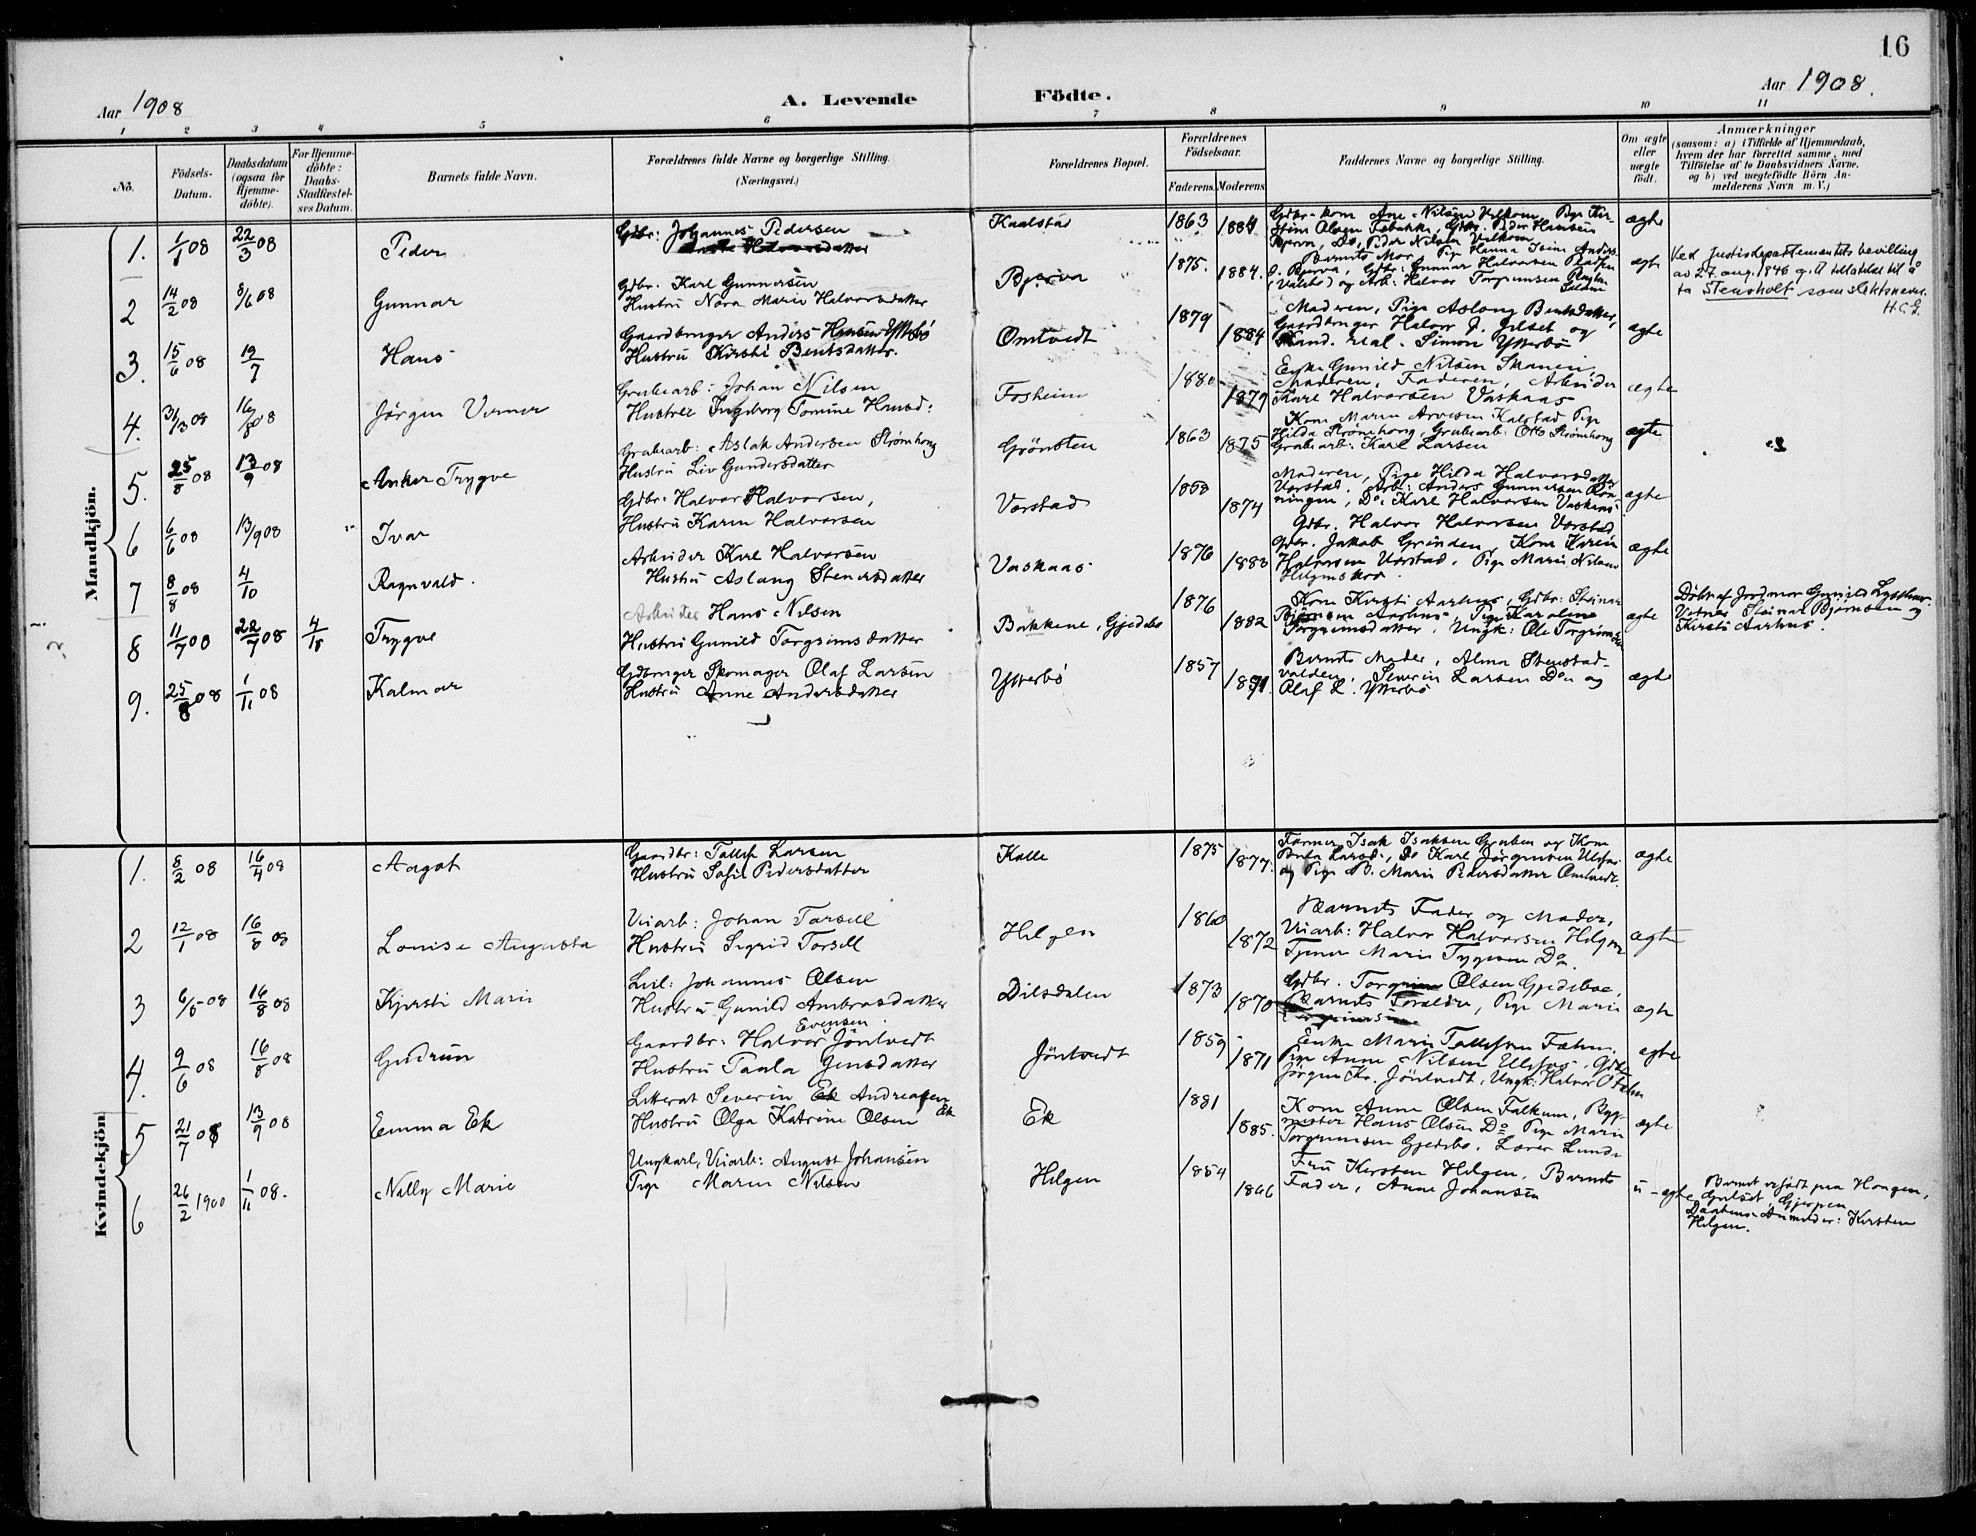 16
Aar 1908
A. Levende Födte.
Aar 1908.
1 2 3 4 5 6 7 8 9 10 11
No.
Födsels-Datum.
Daabsdatum (ogsaa for Hjemme-döbte).
For Hjemme-döbte: Daabs-Stadfæstel-ses Datum.
Barnets fulde Navn.
Forældrenes fulde Navne og borgerlige Stilling.
(Næringsvei.)
Forældrenes Bopæl.
Forældrenes Födselsaar.
Faderens. Moderens.
Faddernes Navne og borgerlige Stilling.
Om ægte eller uægte födt.
Anmærkninger
(saasom: a) i Tilfælde af Hjemmedaab,
hvem der har forrettet samme, med
Tilföielse af to Daabsvidners Navne,
og b) ved uægtefödte Börn An-
melderens Navn m. V.)
Mandkjön.
1. 1/1 08 22/3 08 Peder
Gdbr: Johannes Pedersen
Kaalstad 1863 1884
ægte
2 14/2 08 8/6 08 Gunnar
Gdbr. Karl Gunnarsen
Hustru Nora Marie Halvorsdatter
Bjerva 1875. 1884.
Barnets Mor, Pige Hanna
Bjerva, Gdbr: Gunnar Halvorsen
og Arb: Halvor Torgrimsen
ægte
Ved Justisdepartementets bevilling
av 27. aug. 1946 gitt tillatelse til å
ta Stensholt som slektsnavn.
H.C.G.
3. 15/6 08 19/7 Hans
Gaardbruger Anders Hansen Ytterbö
Hustru Kirsti Bentsdatter.
Omtvedt 1879 1884
Moderen, Pige Aslaug Bentsdatter,
Gaardbruger Halvor J. Jelset og
Simon Ytterbö
ægte
4. 31/3 08 16/8 08 Jörgen Verner
Grubearb: Johan Nilsen
Hustru Ingeborg Tomine Hansd:
Fosheim 1880 1879
Enke Gunild Nilsen
Moderen, Faderen, Arbeider
Karl Halvorsen Vaskaas
ægte
5. 25/8 08 13/9 08 Anker Trygve
Grubearb: Aslak Andersen Strömhong
Hustru Liv Gundersdatter
Grönsten 1863 1875
Kone Maren Arvesen Kalstad Pige
Hilda Strömhong, Grubearb: Otto Strömhong
Grubearb: Karl Larsen
ægte
6 6/6 08 13/9 08 Ivar
Gdbr: Halvor Halvorsen,
Hustru Karen Halvorsen
Vorstad 1858 1874
Moderen, Pige Hilda Halvorsdatter
Vorstad, Arb: Anders Gunnersen Rön-
ningen, Do: Karl Halvorsen Vaskaas
ægte
7 8/8 08 4/10 Ragnvald.
Arbeider Karl Halvorsen
Hustru Aslaug Stenersdatter
Vaskaas 1876 1883
Gdbr. Halvor Halvorsen Vorstad
Gdbr. Jakob Grinden, Kone Karen
Halvorsen Vorstad, Pige Marie Nilsen
ægte
8 11/7 08 22/7 08 Trygve
Arbeider Hans Nilsen
Hustru Gunild Torgrimsdatter
Bakkene, Gjedebo 1876 1882
Kone Kirsti Aarhus, Gdbr: Steinar
Aarhus, Pige Karoline
Torgrimsdatter, Ungk: Ole Torgrimsen
ægte
Döbt af Jordmor Gunild
Vitner Steinar Björnsen og
Kirsti Aarhus.
9. 25/8 08 1/11 08 Kalmar
Gdbruger Skomager Olaf Larsen
Hustru Anne Andersdatter
Ytterbö 1857
Barnets Moder, Alma Stenstad-
valden, Severin Larsen Do og
Olaf L. Ytterbö
ægte
Kvindekjön
1. 8/2 08 16/4 08 Aagot
Gaardbr: Tollef Larsen
Hustru Sofie Pedersdatter
Kolle 1875 1877.
Farmer Isak Isaksen Graben og Kone
Berta Larsd:, Do Karl Jörgensen
og Pige B. Marie Pedersdatter Omtvedt.
ægte
2 12/1 08 16/8 08 Louise Augusta
Veiarb: Johan Torsell
Hustru Sigrid Torsell
Helgen 1860 1872
Barnets Fader og Moder,
Veiarb: Halvor Halvorsen Helgen
Marie Do
ægte
3 6/5 08 16/8 08 Kjersti Marie
Johannes Olsen
Hustru Gunild Ambrosdatter
Dilsdalen 1873 1870
Gdbr. Torgrim Olsen Gjedebo,
Barnets Foreldre, Pige Marie
ægte
4. 9/6 08 16/8 08 Gudrun
Evensen
Gaardbr. Halvor Jöntvedt
Hustru Paula Jensdatter
Jöntvedt 1859 1871
Enke Marie Tollefsen
Pige Anne Nilsen Ulefos, Gdbr
Jörgen Kr. Jöntvedt, Ungk: Halvor
ægte
5 21/7 08 13/9 08 Emma Ek
Litterat Severin Andreasen Ek
Hustru Olga Katrine Olsen
Ek 1881 1885.
Kone Anne Olsen Falkum, Byg-
mester Hans Olsen Do, Pige Marie
Torgrimsen Gjedebo, Lærer Lunde
ægte
6 26/2 1900 1/11 08. Nelly Marie
Ungkarl, Veiarb: August Johansen
Pige Maren Nilsen
Helgen 1854 1866
Fru Kirsten Helgen, Barnets
Fader, Anne Johansen
u-ægte
Barnet er födt paa Haugen,
Gjerpen
Daabens Anmelder: Kirsten
Helgen.